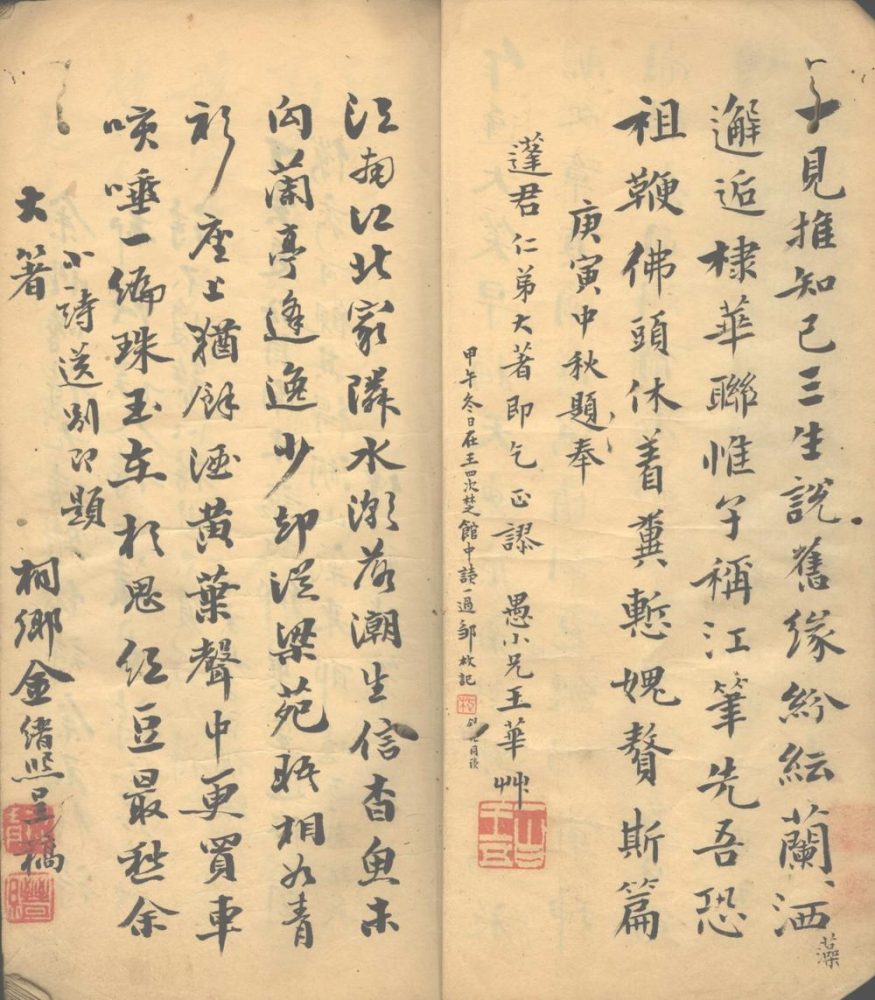 一見推知己三生說舊緣紛紜蘭洒
藻
邂逅棣華聯惟子稱江筆先吾恐
祖鞭佛頭休着糞慙媿贅斯篇
庚寅中秋題奉
蓬君仁弟大著即乞正謬 愚小兄王華艸
甲午冬日在王四次楚館中讀一過鄒 記
江南江北家隣水潮落潮生信杳魚未
向蘭亭逢逸少却從梁苑晤相如青
衫座上猶餘酒黃葉聲中更買車
咳唾一編珠玉在相思紅豆最愁余
小詩送别即題
大著
桐鄉金緒熙呈稿